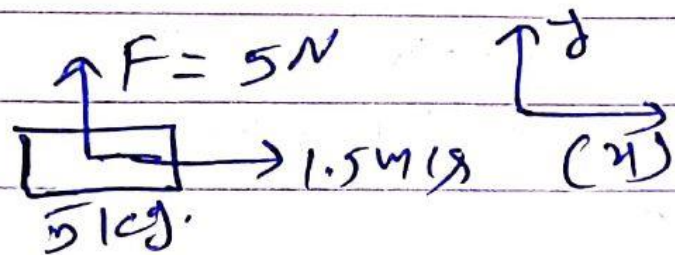 F = 5N y
1.5m/s (x)
5kg.